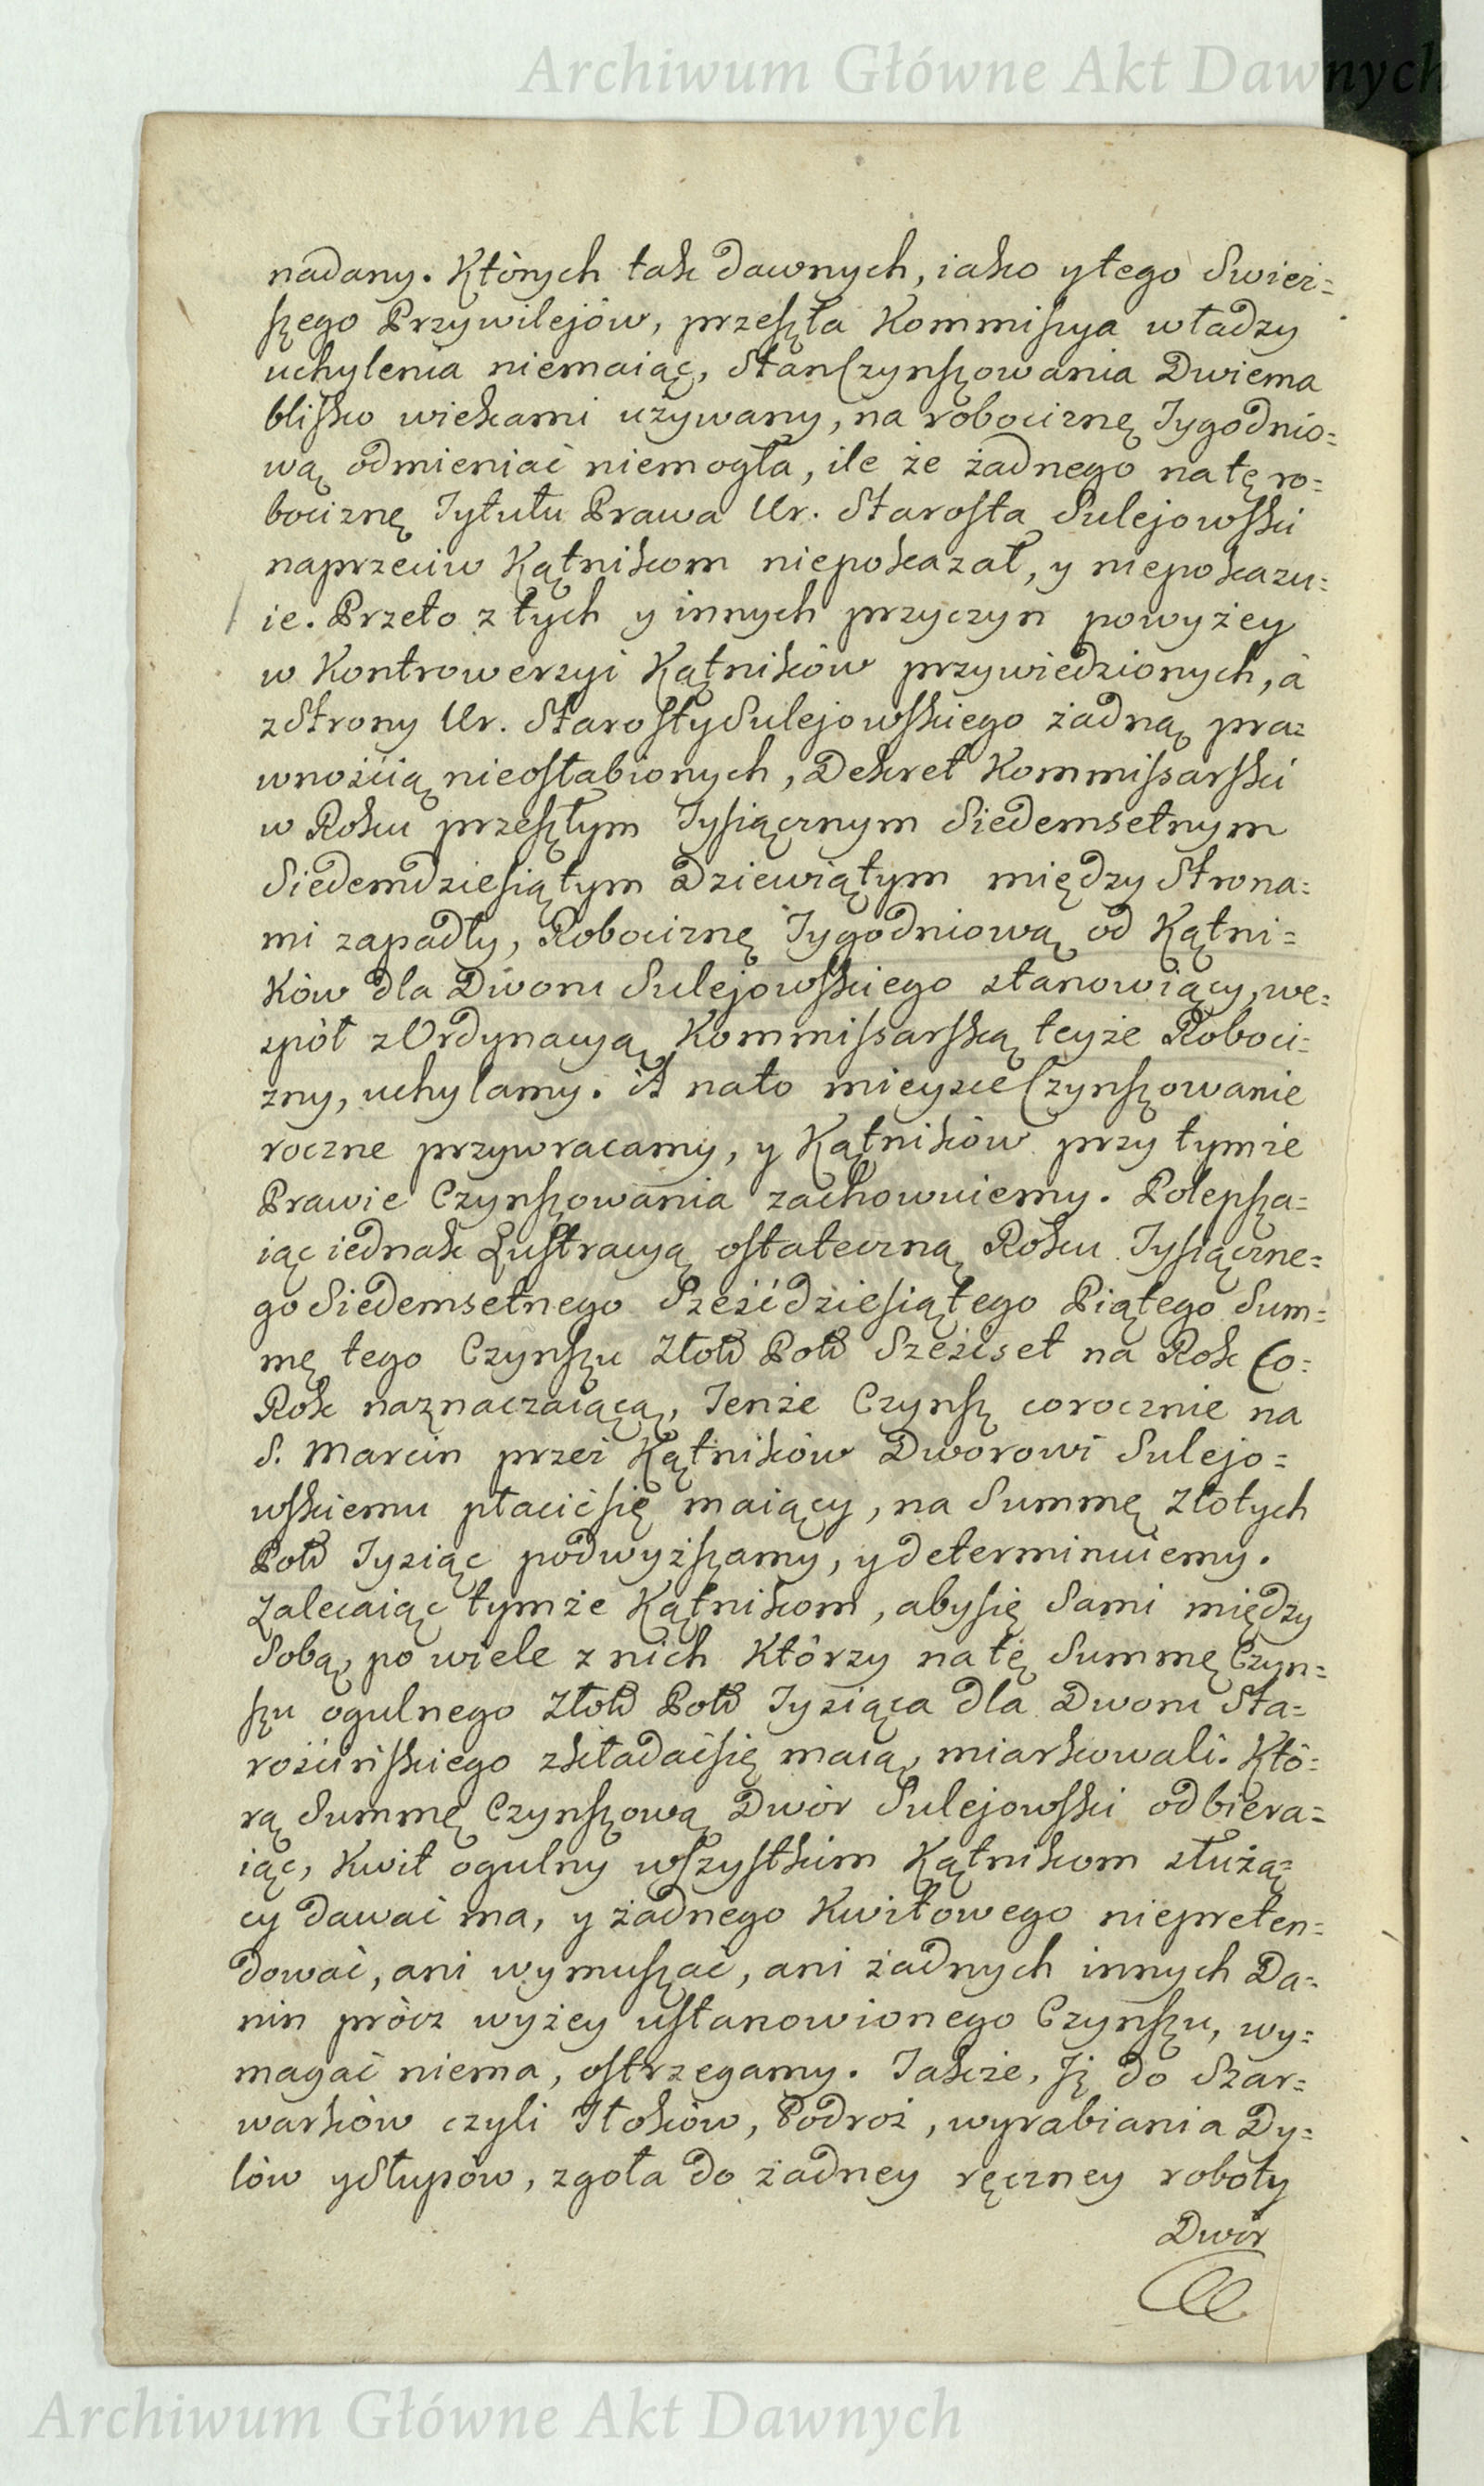 Archiwum Główne Akt Dawnych
nadany. Których tak dawnych, iako y tego Swież=
szego Przywilejów, przeszła Kommissya władzy
uchylenia niemaiąc, Stan Czynszowania Dwiema
blisko wiekami używany, na robociznę Tygodnio=
wą odmieniać niemogła, ile że żadnego na tę ro=
bociznę Tytułu Prawa Ur. Starosta Sulejowski
naprzeciw Kątnikom niepokazał, y niepokazu=
ie. Przeto z tych y innych przyczyn powyżey
w Kontrowerzyi Kątników przywiedzionych, á
z Strony Ur. Starosty Sulejowskiego żadną pra=
wnością nieosłabionych, Dekret Kommissarski
w Roku przeszłym Tysiącznym Siedemsetnym
Siedemdziesiątym Dziewiątym między Strona=
mi zapadły, Robociznę Tygodniową od Kątni=
ków dla Dworu Sulejowskiego stanowiący, we=
spół z Ordynacyą Kommissarską teyże Roboci=
zny, uchylamy. A nato mieysce Czynszowanie
roczne przywracamy, y Kątników przy tymże
Prawie Czynszowania zachowuiemy. Polepsza=
iąc iednak Lustracyą ostateczną Roku Tysiączne=
go Siedemsetnego Sześćdziesiątego Piątego Sum=
mę tego Czynszu Złotł Polł Sześćset na Rok Co=
Rok naznaczaiącą, Tenże Czynsz corocznie na
S. Marcin przez Kątników Dworowi Sulejo=
wskiemu płacić się maiący, na Summę Złotych
Polł Tysiąc podwyższamy, y determinuiemy.
Zalecaiąc tymże Kątnikom, aby się Sami między
Sobą, po wiele z nich Którzy na tę Summę Czyn=
szu ogulnego Złotł Polł Tysiąca dla Dworu Sta=
rościńskiego zkładać się maią, miarkowali. Któ=
rą Summę Czynszową Dwór Sulejowski odbiera=
iąc, Kwit ogulny wszystkim Kątnikom służą=
cy dawać ma, y żadnego Kwitowego niepreten=
dować, ani wymuszać, ani żadnych innych Da=
nin prócz wyżey ustanowionego Czynszu, wy=
magać niema, ostrzegamy. Także, Ią do Szar=
warków czyli Tłoków, Podroż, wyrabiania Dy=
lów y Słupów, zgoła do żadney ręczney roboty
Dwór
Archiwum Główne Akt Dawnych